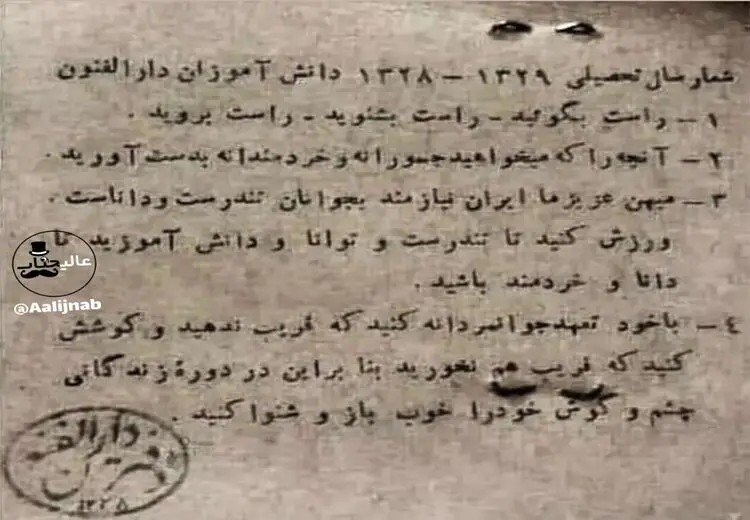 شعار سال تحصیلی ۱۳۲۹ - ۱۳۲۸ دانش آموزان دارالفنون
۱ - راست بگوئید - راست بشنوید - راست بروید .
۲ - آنچه را که میخواهید جسورانه و خردمندانه بدست آورید .
۳ - میهن عزیز ما ایران نیازمند بجوانان تندرست و داناست .
ورزش کنید تا تندرست و توانا و دانش آموزید تا
دانا و خردمند باشید .
٤ - باخود تعهد جوانمردانه کنید که فریب ندهید و کوشش
کنید که فریب هم نخورید بنا براین در دورهٔ زندگانی
چشم و گوش خودرا خوب باز و شنوا کنید .
عالیجناب
@Aalijnab
دفتر دارالفنون